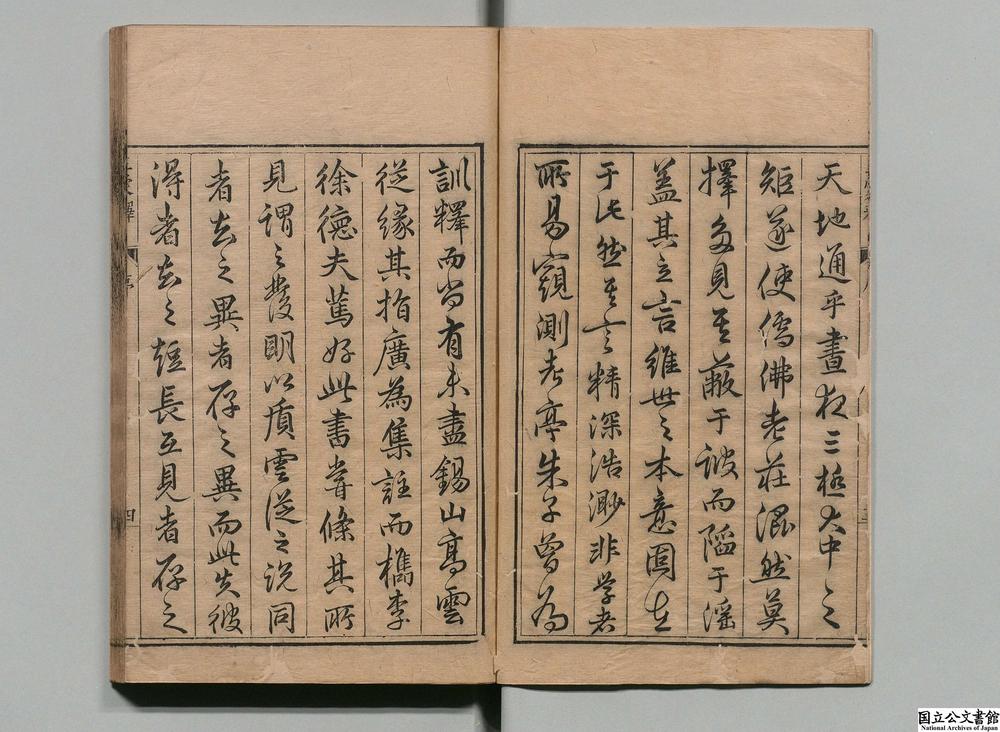 天地通乎晝夜三極大中之
矩遂使儒佛老莊混然莫
擇多見其蔽于詖而陷于淫
蓋其立言維世之本意固在
于此然其言精深浩渺非学者
所易窺測考亭朱子曾為
訓釋而尚有未盡錫山高雲
從緣其指廣為集註而檇李
徐德夫篤好此書嘗條其所
見謂之發明以質雲從之説同
者去之異者存之異而此失彼
得者去之短長互見者存之
四
国立公文書館
National Archives of Japan